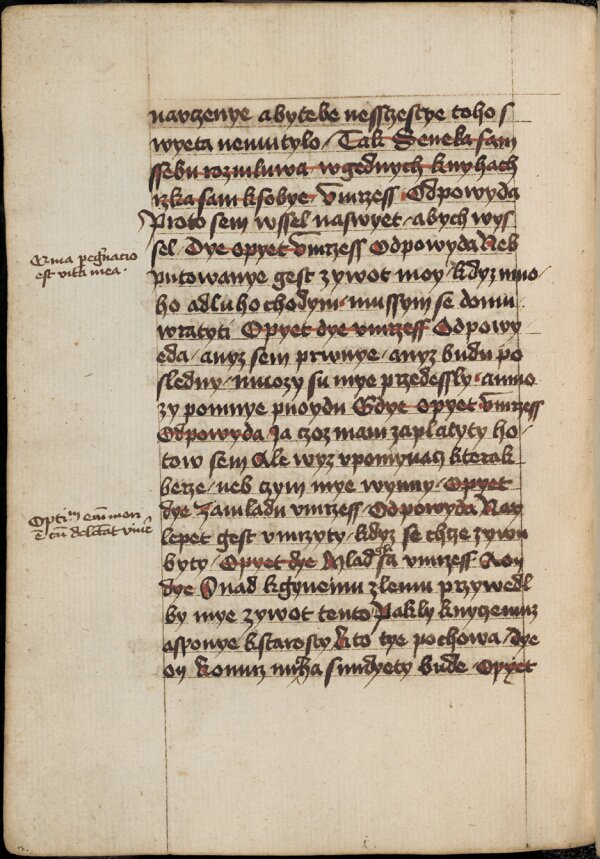 nauczenye abytebe nessczestye toho s
wyeta nemutylo / Tak Seneka sam
ssebu rozmluwa wgednych knyhach
rzka sam ksobye / Vmrzess Odpowyda
Proto sem wssel naswyet / abych wys
sel / Dye opyet Vmrzess Odpowyda Neb
putowanye gest zywot moy / kdyz mno
ho adluho chodym / mussym se domu
wratyti Opyet dye vmrzess Odpowy
eda / anyz sem prwnye / anyz budu po
sledny / mnozy su mye przedessly / amno
zy pomnye puoydu Gdye opyet Vmrzess
Odpowyda Ja czoz mam zaplatyty ho
tow sem Ale wyz vpomynacz kterak
berze / neb czym mye wynny / Opyet
dye Zamladu vmrzess / Odpowyda Nay
lepet gest vmrzyty / kdyz se chcze zywu
byty / Opyet dye Mlad vmrzess Aon
dye Snad kgynemu zlemu przywedl
by mye zywot tento Pakly knyczemuz
asponye kstarosty Kto tye pochowa / dye
on Komuz mrcha smrdyety bude / Opyet
Quia pegrinacio
est vita mea ·
Optim est mori
cu delectat viue